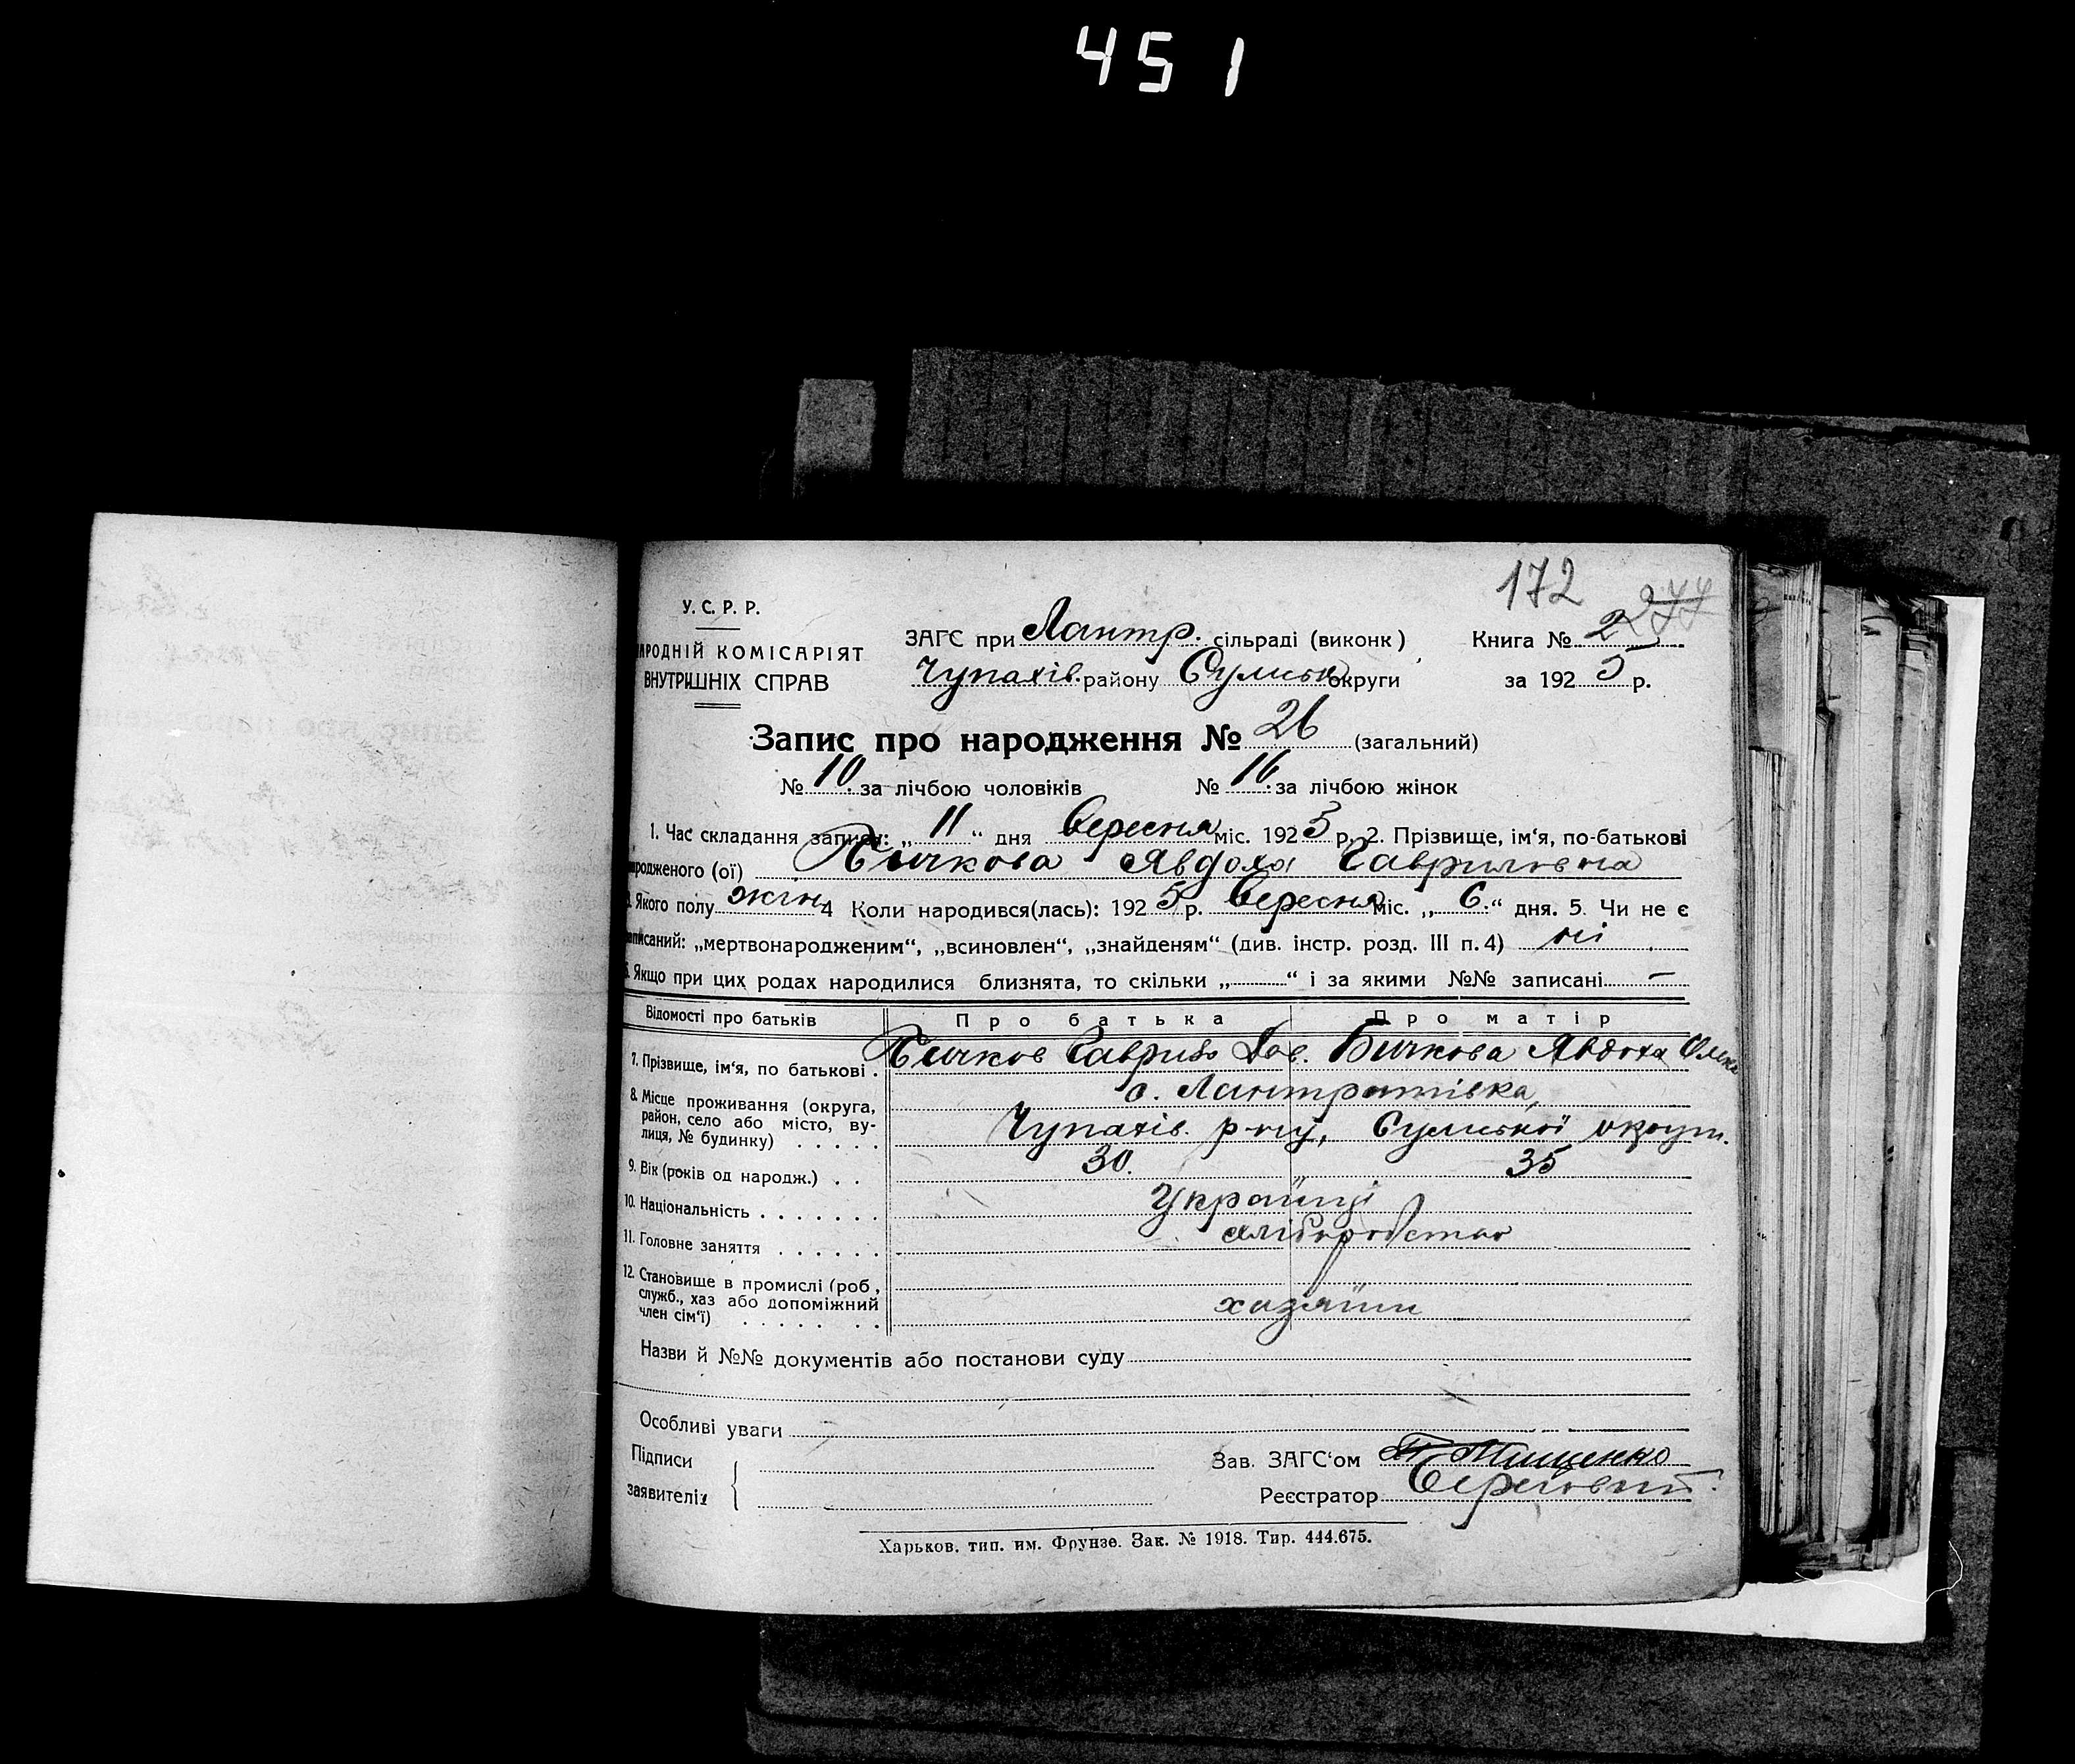 451
172 277
У. С. Р. Р.
НАРОДНІЙ КОМІСАРІЯТ
ВНУТРІШНІХ СПРАВ
ЗАГС при Лантр. сільраді (виконк)
Чупахів. району Сумськ округи
Книга № 2
за 1925 р.
Запис про народження № 26 (загальний)
№ 10. за лічбою чоловіків № 16. за лічбою жінок
1. Час складання запису: „11“ дня Вересня міс. 1925 р. 2. Прізвище, ім‘я, по-батькові
народженого (ої) Бичкова Явдоха Гавриловна
3. Якого полу жін. 4 Коли народився(лась): 1925 р. Вересня міс. „6.“ дня. 5. Чи не є
записаний: „мертвонародженим“, „всиновлен“, „знайденям“ (див. інстр. розд. III п. 4) ні
6. Якщо при цих родах народилися близнята, то скільки „ “ і за якими №№ записані –
Відомості про батьків Про батька Про матір
7. Прізвище, ім‘я, по батькові . Бичков Гаврило . Бичкова Явдоха Олекс
8. Місце проживання (округа, район, село або місто, вулиця, № будинку) . . . . с. Лантратівка,
Чупахів. р-ну, Сумської округи.
9. Вік (років од народж.) . . 30. 35
10. Національність . . . . . . . Українці
11. Головне заняття . . . . . . хліборобство
12. Становище в промислі (роб, служб., хаз або допоміжний член сім‘ї) . . . . . . . хазяїни
Назви й №№ документів або постанови суду
Особливі уваги
Підписи
заявителів
Зав. ЗАГС‘ом Мищенко
Реєстратор
Харьков, тип. им. Фрунзе. Зак. № 1918. Тир. 444.675.